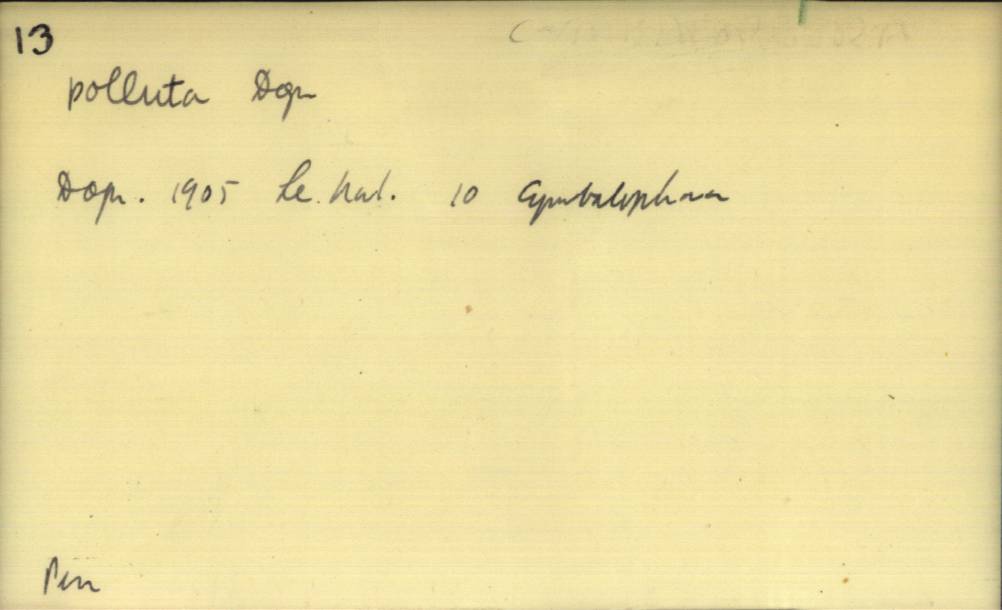 13
polluta Dogn
Dogn. 1905 Le. Nat. 10 Cymbalophora